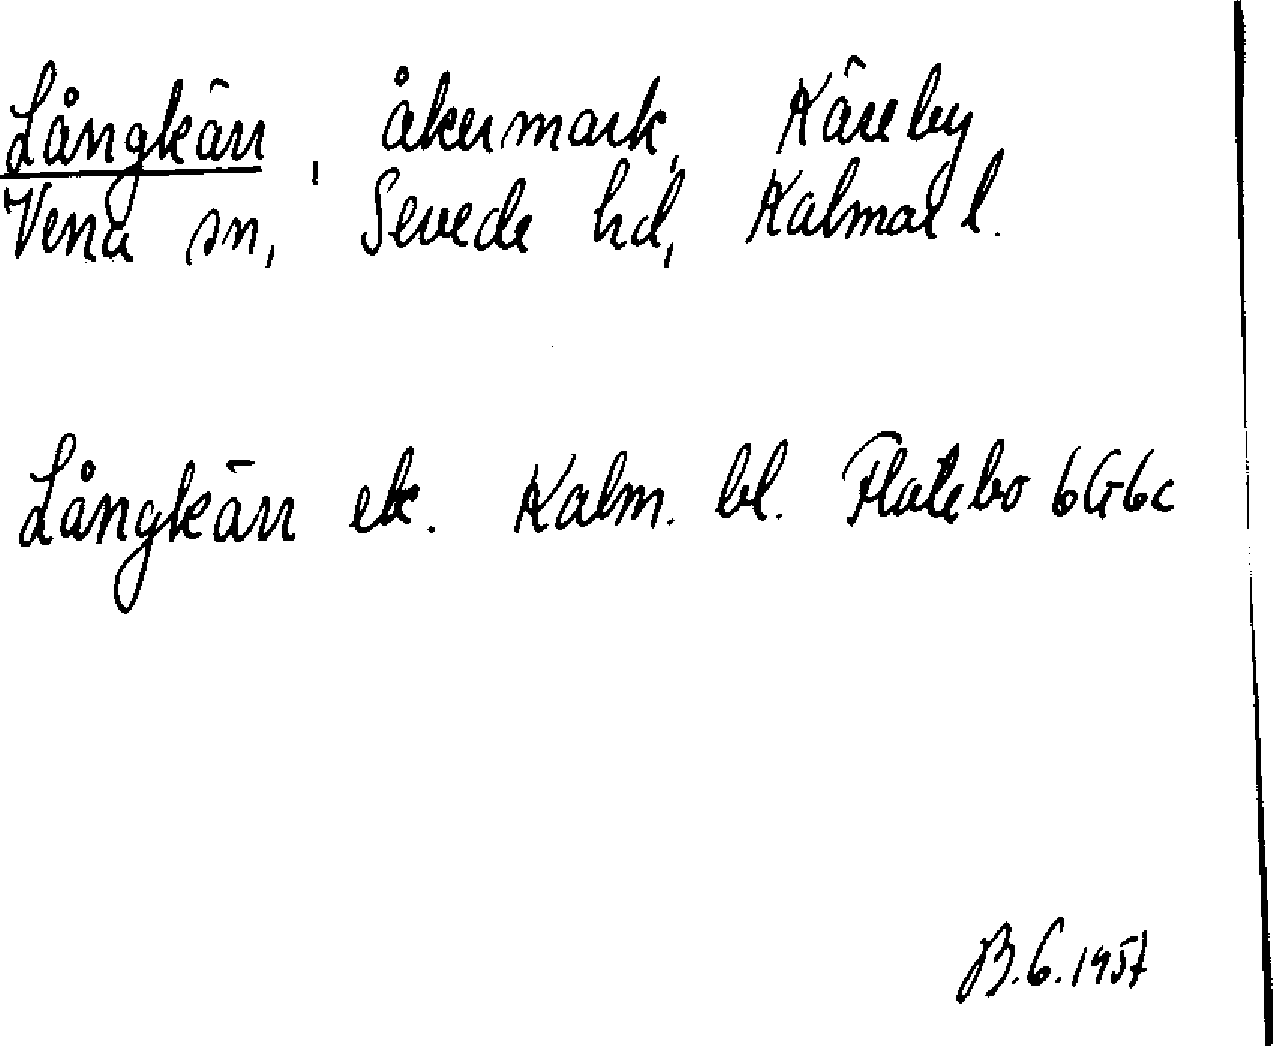 Långkärr, åkermark, Käreby
Vena sn, Sevede hd, Kalmar l.
Långkärr ek. Kalm. bl. Flatebo 6G6c
B.G. 1957